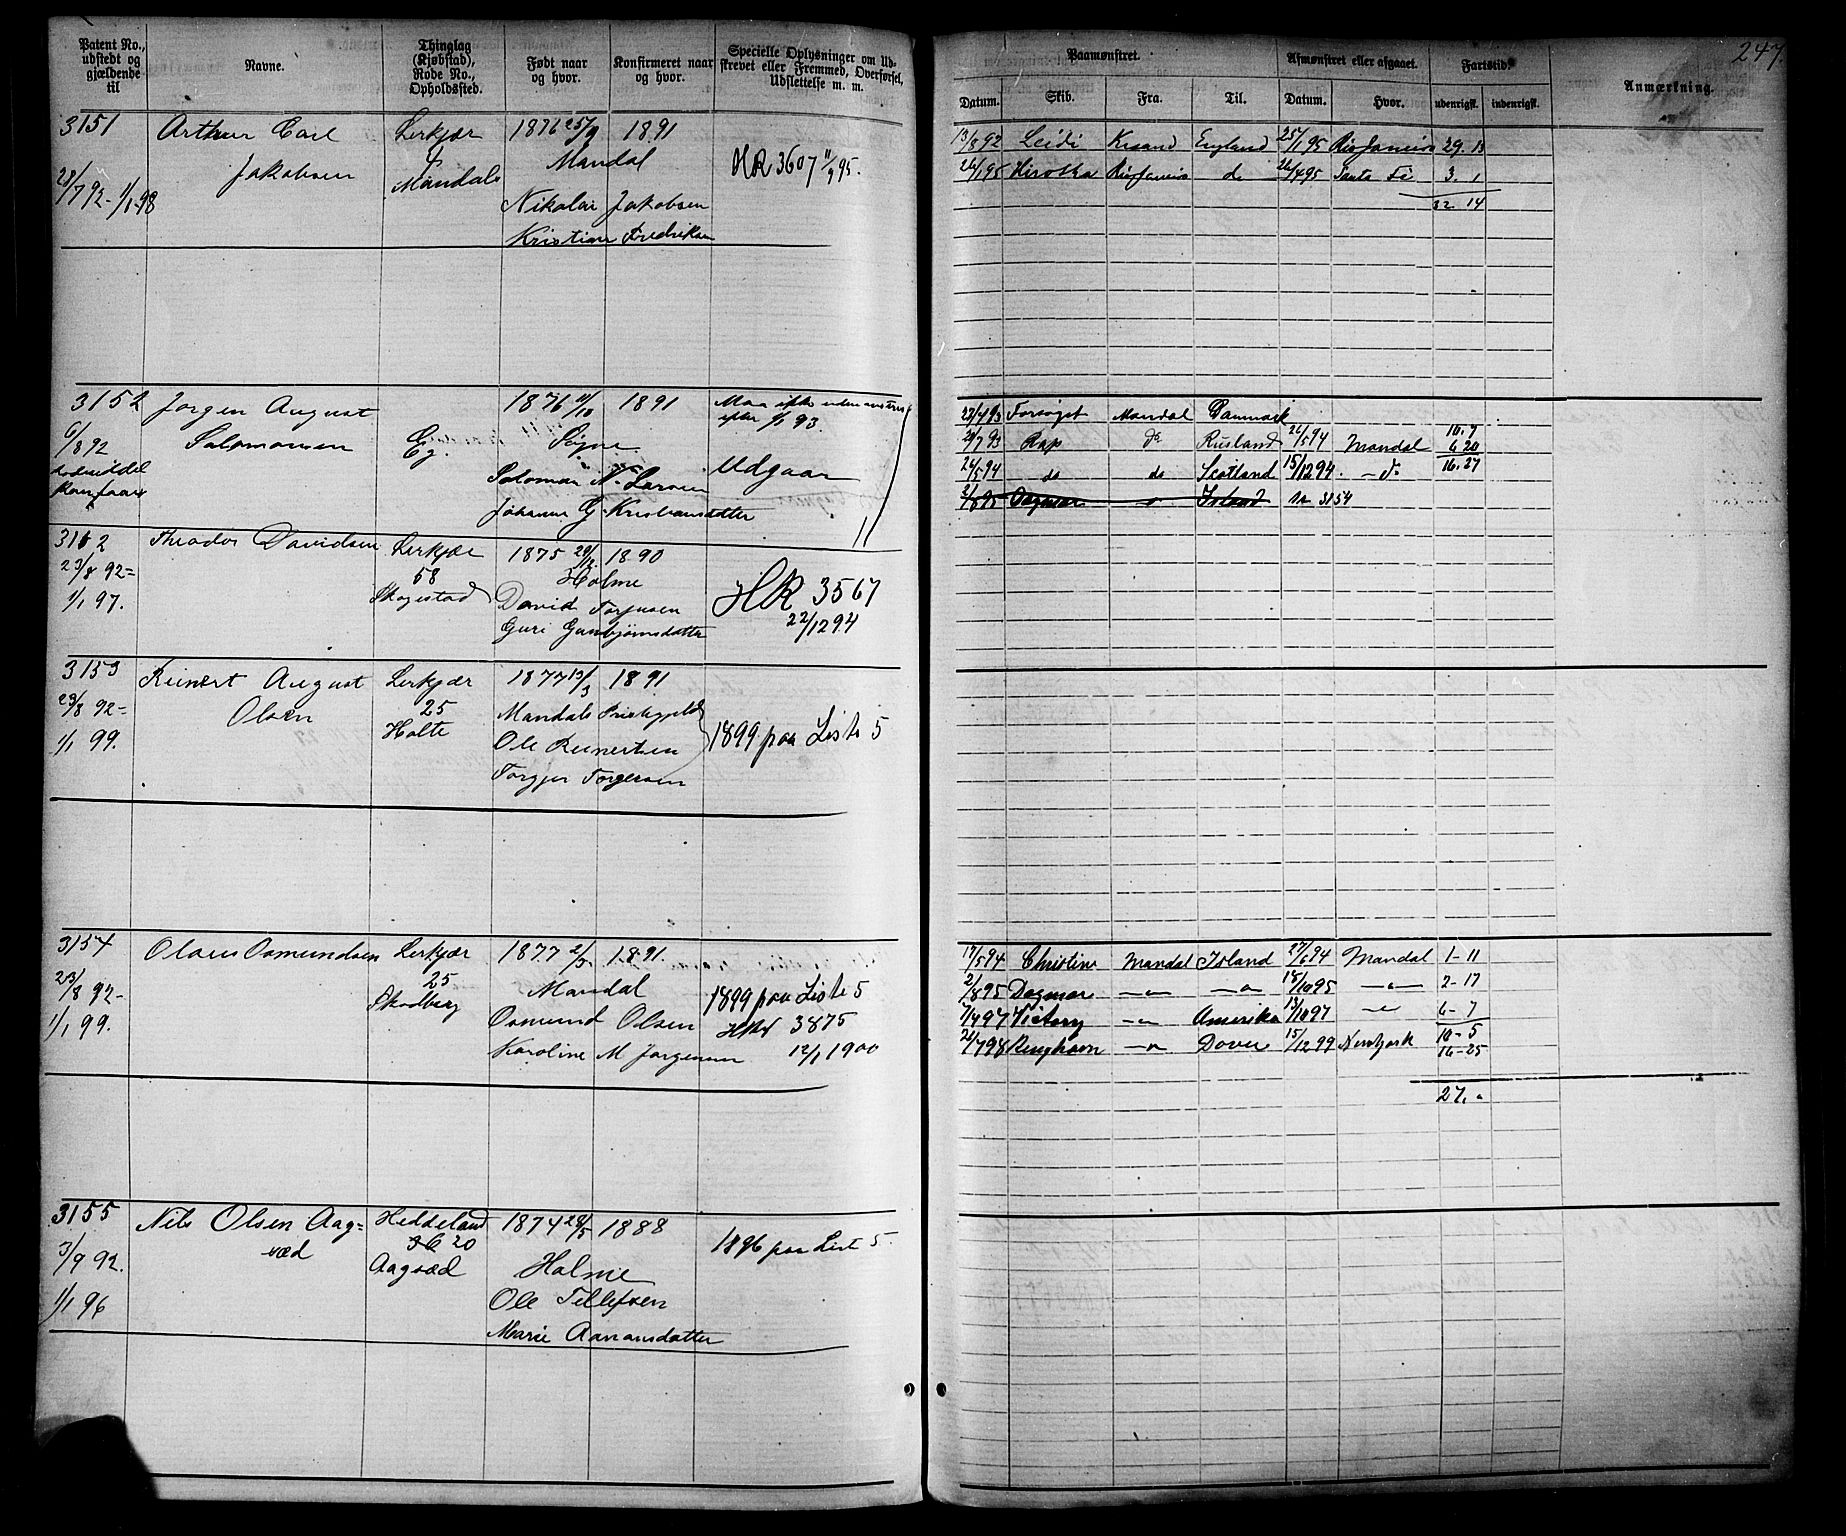 247.
Patent No., udstedt og gjældende til
Navne.
Thinglag (Kjøbstad), Rode No., Opholdssted.
Født naar og hvor.
Konfirmeret naar og hvor.
Specielle Oplysninger om Udskrevet eller Fremmed, Overførsel, Udslettelse m. m.
Paamønstret.
Afmønstret eller afgaaet.
Fartstid.
Anmærkning.
Datum. Skib. Fra. Til. Datum. Hvor. udenrigsk. indenrigsk.
3151 Arthur Carl Lerkjær 1876 25/9 1891
Jakobsen Mandals Mandal HR 3607 11/9 95.
28/7 92 - 1/1 98 Nikolai Jakobsen
Kristiane Fredriksen
13/8 92 Leidi Krsand England 25/1 95 Rio Janeiro 29. 13
26/1 95 Hiroska Rio Janeiro d. 26/4 95 Santa Fé 3. 1
32. 14
3152 Jørgen August 1876 11/10 1891 Maa ikke udmønstres
6/8 92 Salomonsen Eg. Søgne efter 1/1 93.
Salomon N. Larsen Udgaar
Johanne G Kristiansdatter
22/4 93 Forsøget Mandal Danmark
20/7 93 Rap do Rusland 26/5 94 Mandal 10. 7
6 20
26/5 94 do do Scotland 15/12 94. - do 16. 27
2/8 95 Dagmar Island No 3154
3162 Theodor Davidsen Lerkjær 1875 29/12 1890
23/8 92 = 58 Holme HR 3567
1/1 97. Skogestad David Torjusen 22/12 94
Guri Gunbjørnsdatter
3153 Reinert August Lerkjær 1877 13/3 1891
23/8 92 = Olsen 25 Mandals Præstegjeld
1/1 99. Holte Ole Reinertsen 1899 paa Liste 5
Torgjer Torgersen
3154 Olaus Osmundsen Lerkjær 1877 2/3 1891.
23/8 92 - 25 Mandal 1899 paa Liste 5
1/1 99. Skodberg Osmund Olsen HR 3875
Karoline M Jørgensen 12/1 1900
17/5 94 Christine Mandal Island 27/6 94 Mandal 1 - 11
2/8 95 Dagmar 18/10 95 2 - 17
7/4 97 Victory Amerika 13/10 97 6 - 7
10 - 5
26/7 98 Ringhorn Dover 15/12 99 Newyork 16 - 25
27.
3155 Nils Olsen Aag= Heddeland 1874 28/5 1888
3/9 92. væd 20 Holme 1896 paa List 5.
1/1 96 Aagvæd Ole Tellefsen
Marie Aanonsdatter